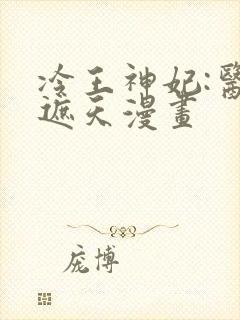 冷王神妃:醫
遮天漫畫
庞博